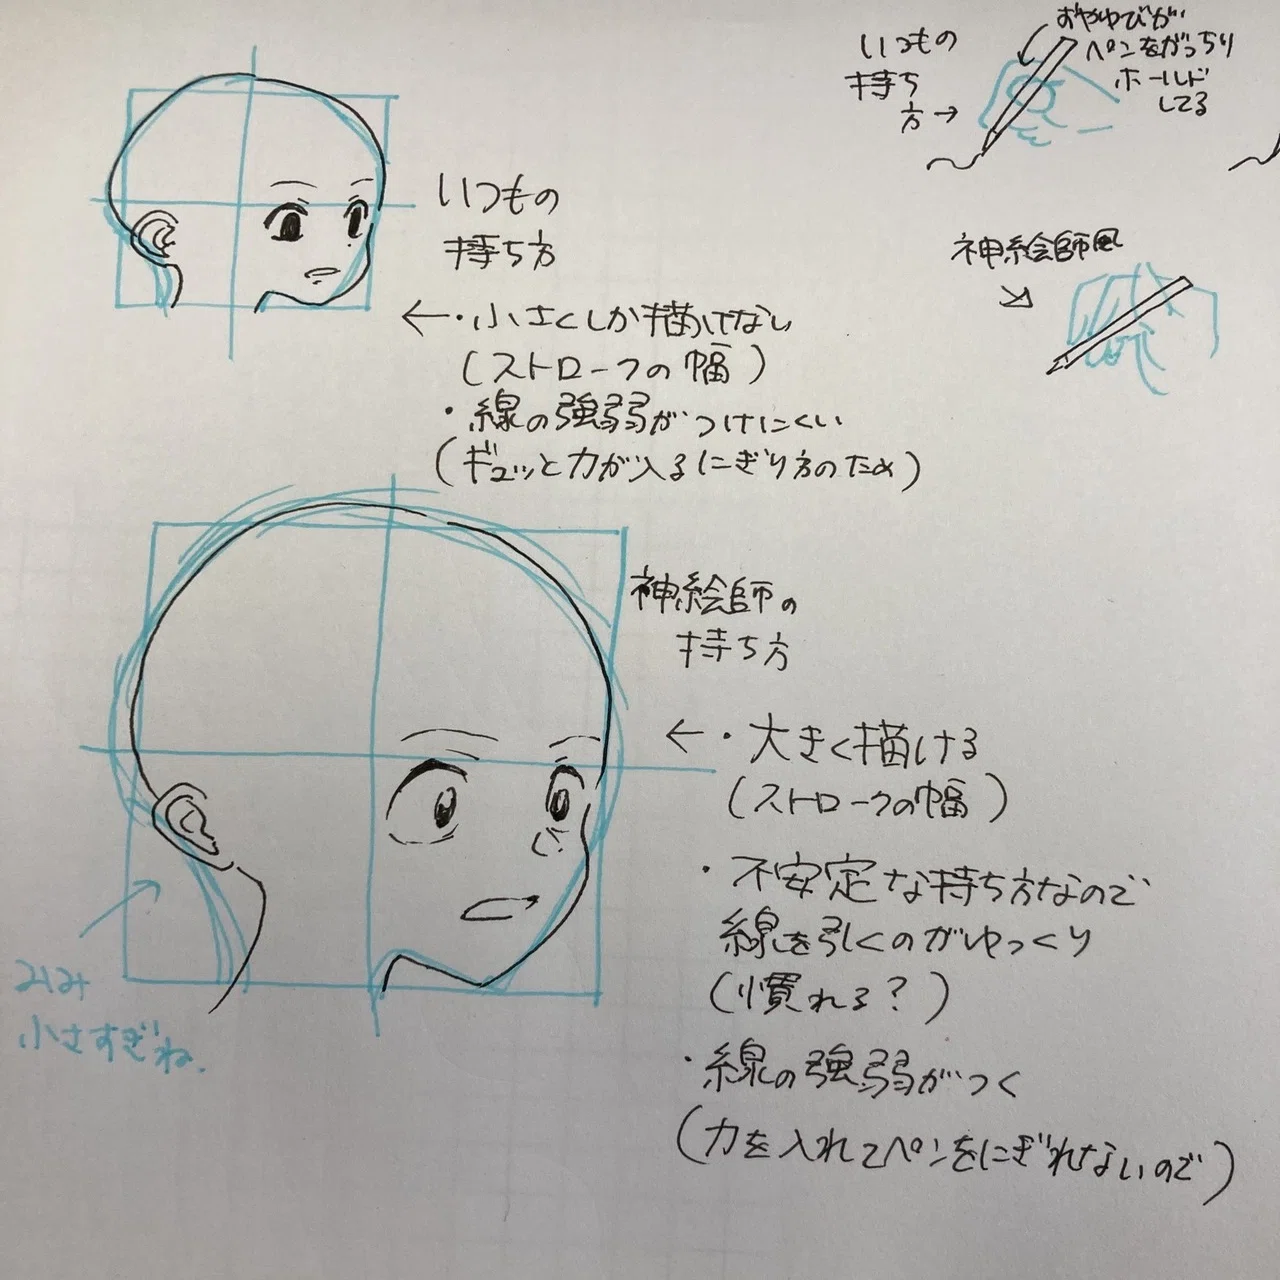 いつもの
持ち
方→
おやゆびが
ペンをがっちり
ホールド
してる
いつもの
持ち方
神絵師風
←・小さくしか描けない
(ストロークの幅)
・線の強弱がつけにくい
(ギュッと力が入るにぎり方のため)
神絵師の
持ち方
←・大きく描ける
(ストロークの幅)
・不安定な持ち方なので
線を引くのがゆっくり
(慣れる?)
・線の強弱がつく
(力を入れてペンをにぎれないので)
みみ
小さすぎね.